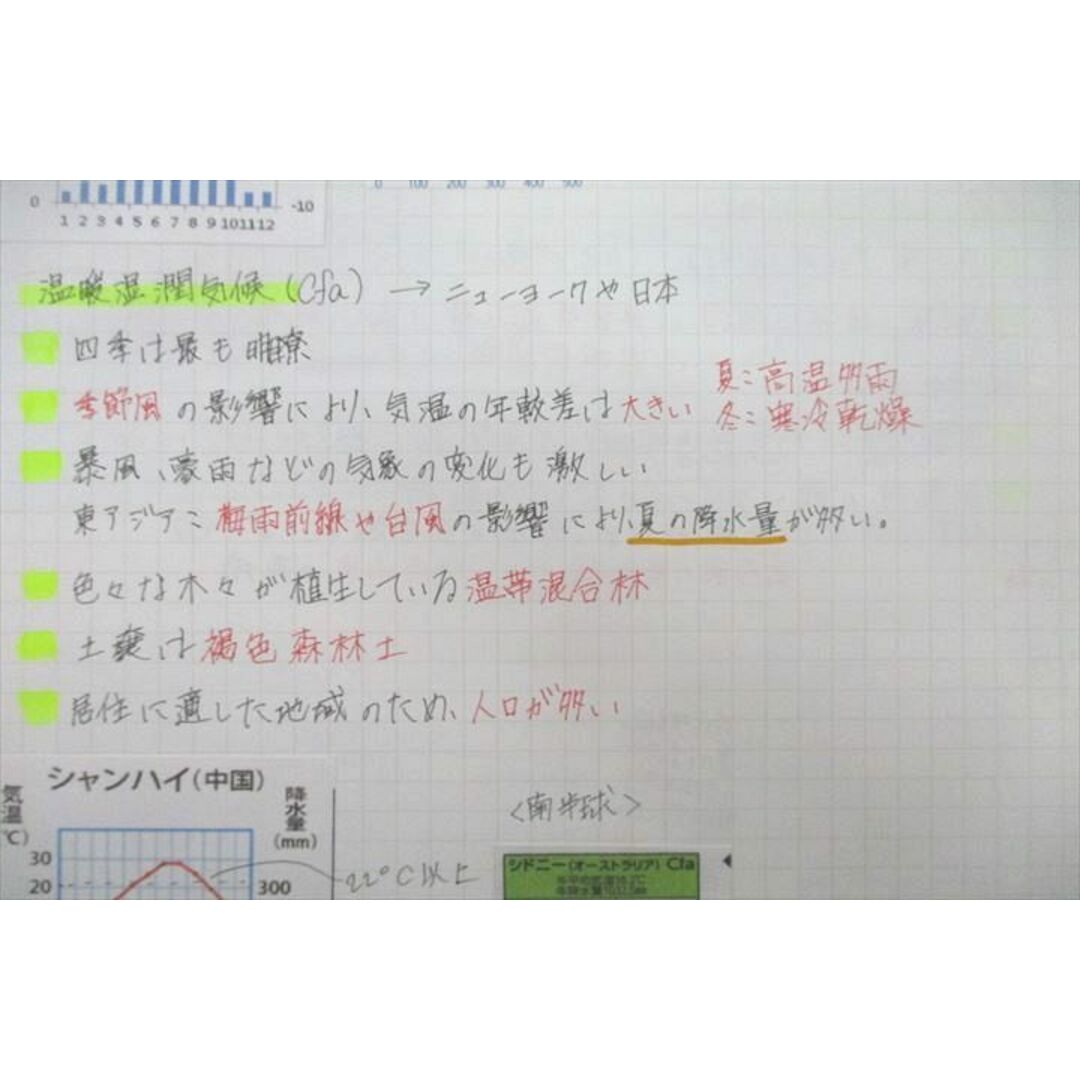 0 -10
1 2 3 4 5 6 7 8 9 101112
0 100 200 300 400 500
温暖湿潤気候(Cfa) → ニューヨークや日本
四季は最も明瞭
季節風の影響により、気温の年較差は大きい
夏:高温多雨
冬:寒冷乾燥
暴風、豪雨などの気象の変化も激しい
東アジア:梅雨前線や台風の影響により、夏の降水量が多い。
色々な木々が植生している温帯混合林
土壌は褐色森林土
居住に適した地域のため、人口が多い
シャンハイ(中国)
気温(℃)
降水量(mm)
30
20
300
22°C以上
<南半球>
シドニー(オーストラリア) Cfa